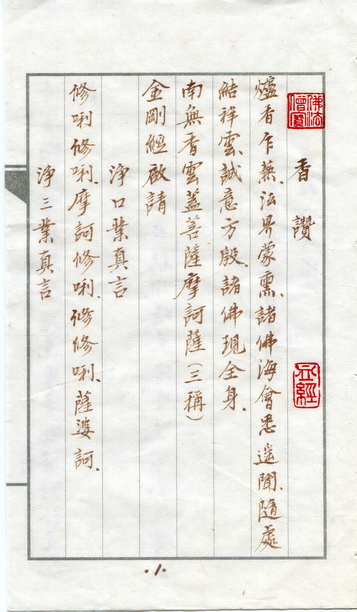 香讚
爐香乍爇、法界蒙熏、諸佛海會悉遙聞、隨處
結祥雲、誠意方殷、諸佛現全身、
南無香雲蓋菩薩摩訶薩(三稱)
金剛經啟請
淨口業真言
修唎修唎、摩訶修唎、修修唎、薩婆訶、
淨三業真言
.1.